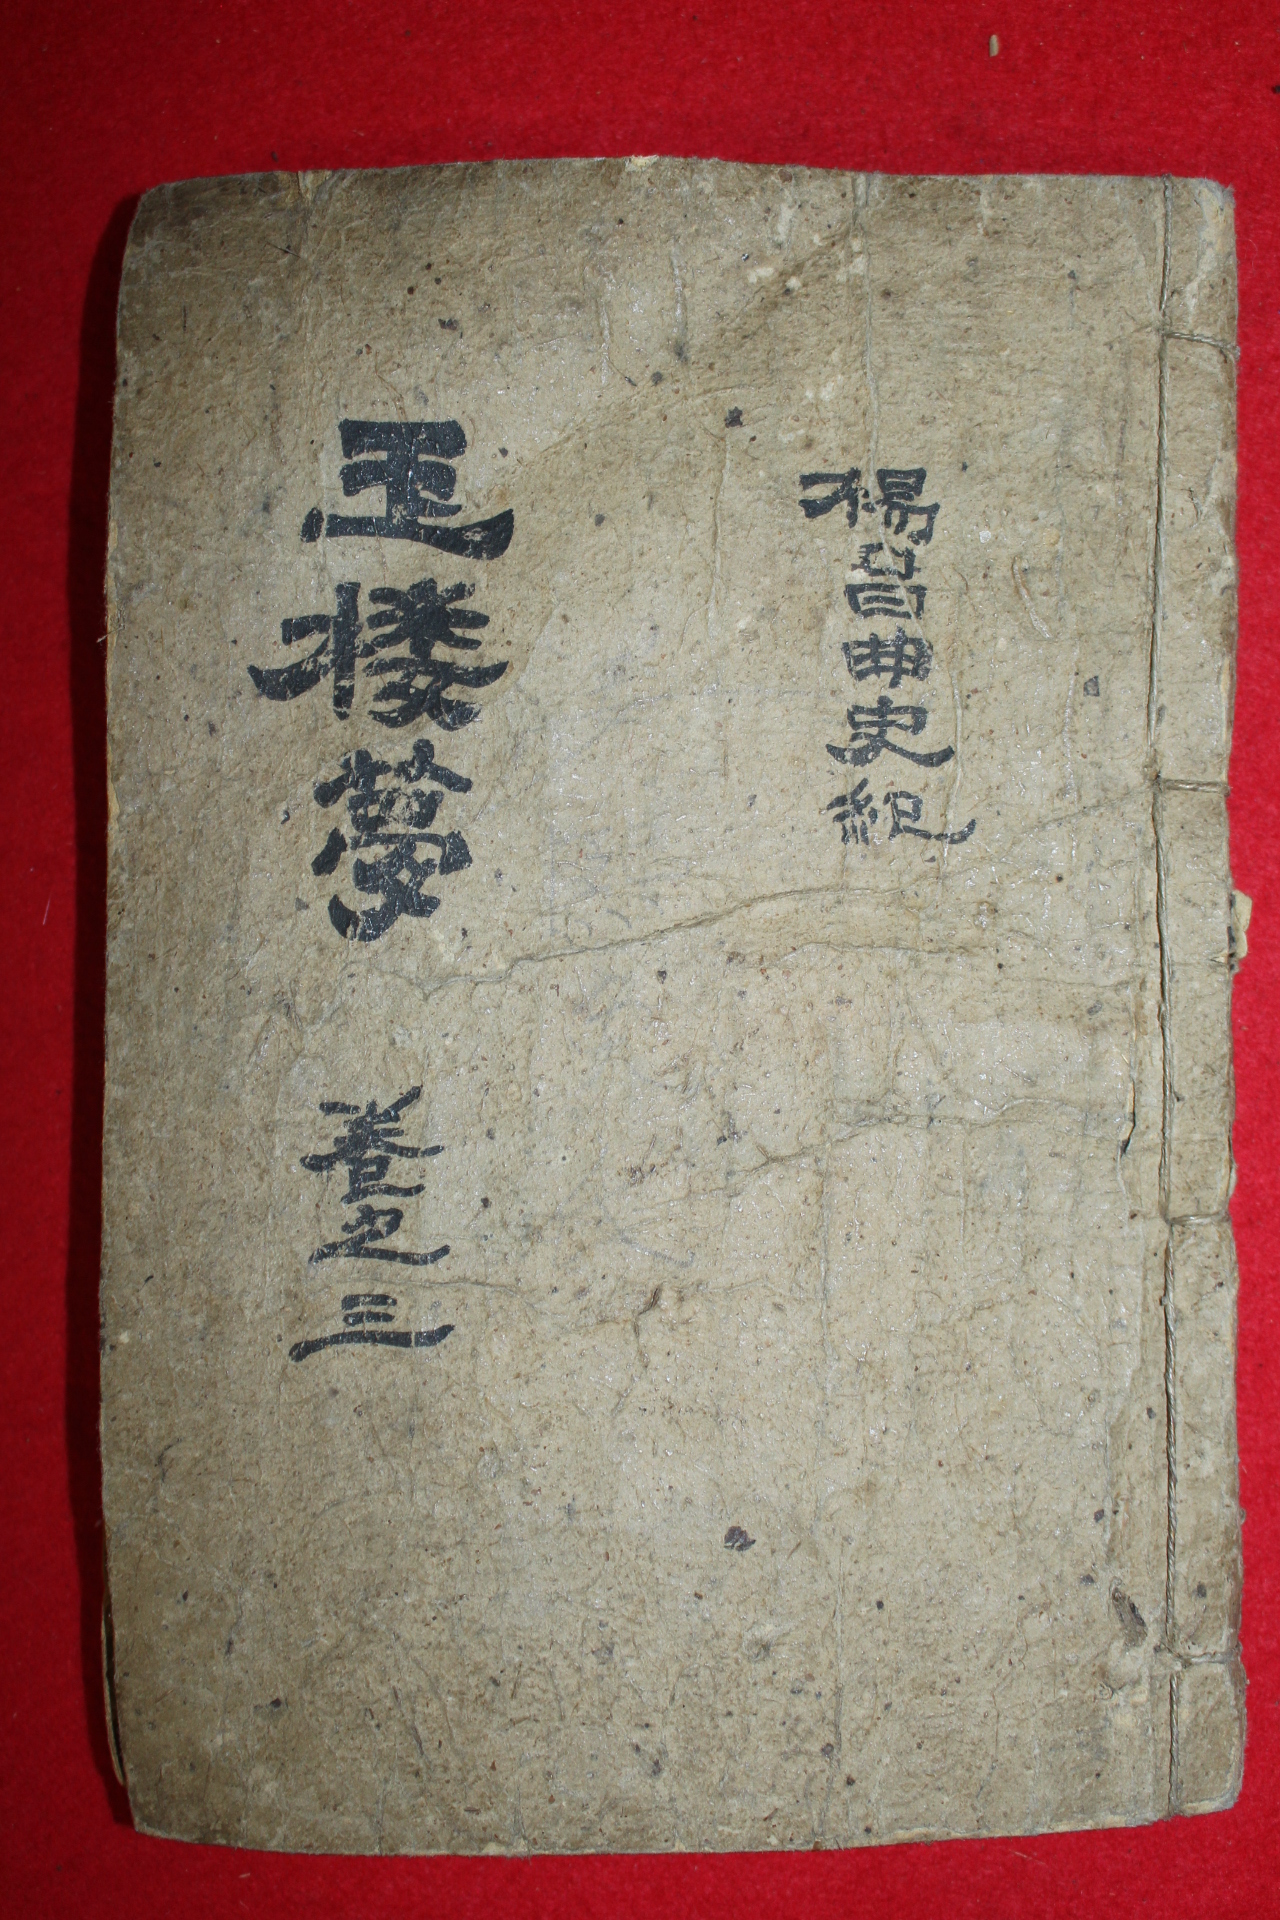 楊昌曲史紀
玉樓夢 卷之三